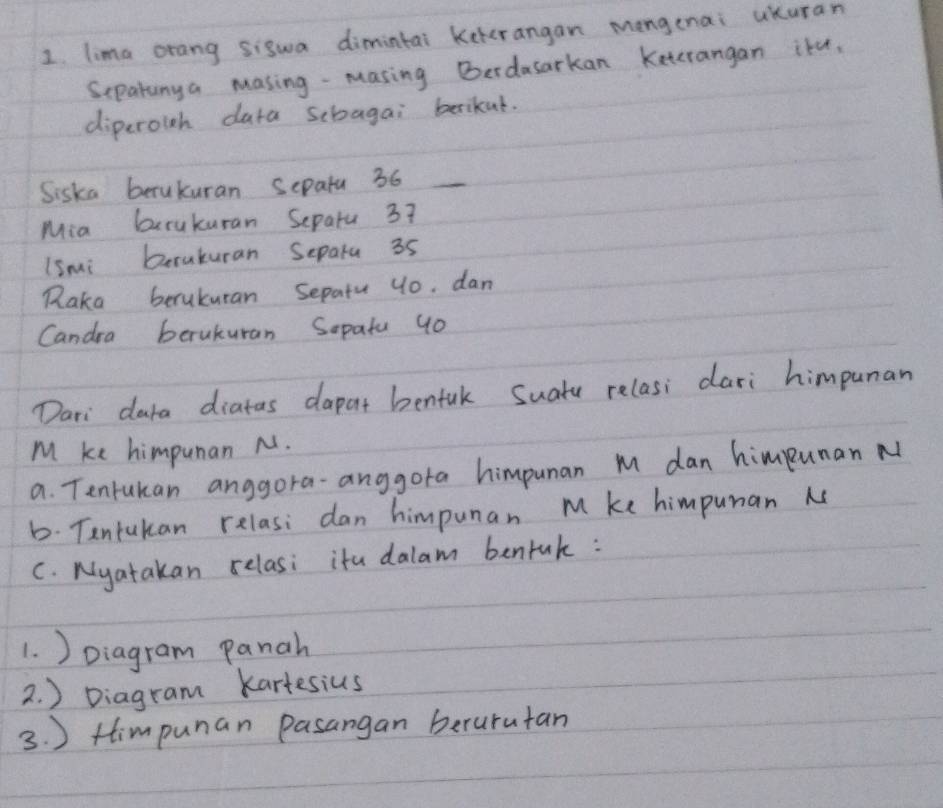 1. lima orang siswa dimintai Keterangan mengenai ukuran
Sepatunya masing-masing Berdasarkan Keterangan itu.
diperoleh data sebagai berikut.
Siska berukuran Sepatu 36 —
Mia berukuran Sepatu 37
Ismi berukuran Sepatu 35
Raka berukuran Sepatu 40. dan
Candra berukuran Sepatu 40
Dari data diatas dapat bentuk Suatu relasi dari himpunan
M ke himpunan N.
a. Tentukan anggota-anggota himpunan M dan himpunan N
b. Tentukan relasi dan himpunan M ke himpunan N
C. Nyatakan relasi itu dalam bentuk :
1.) Diagram panah
2.) Diagram Kartesius
3.) Himpunan pasangan berurutan